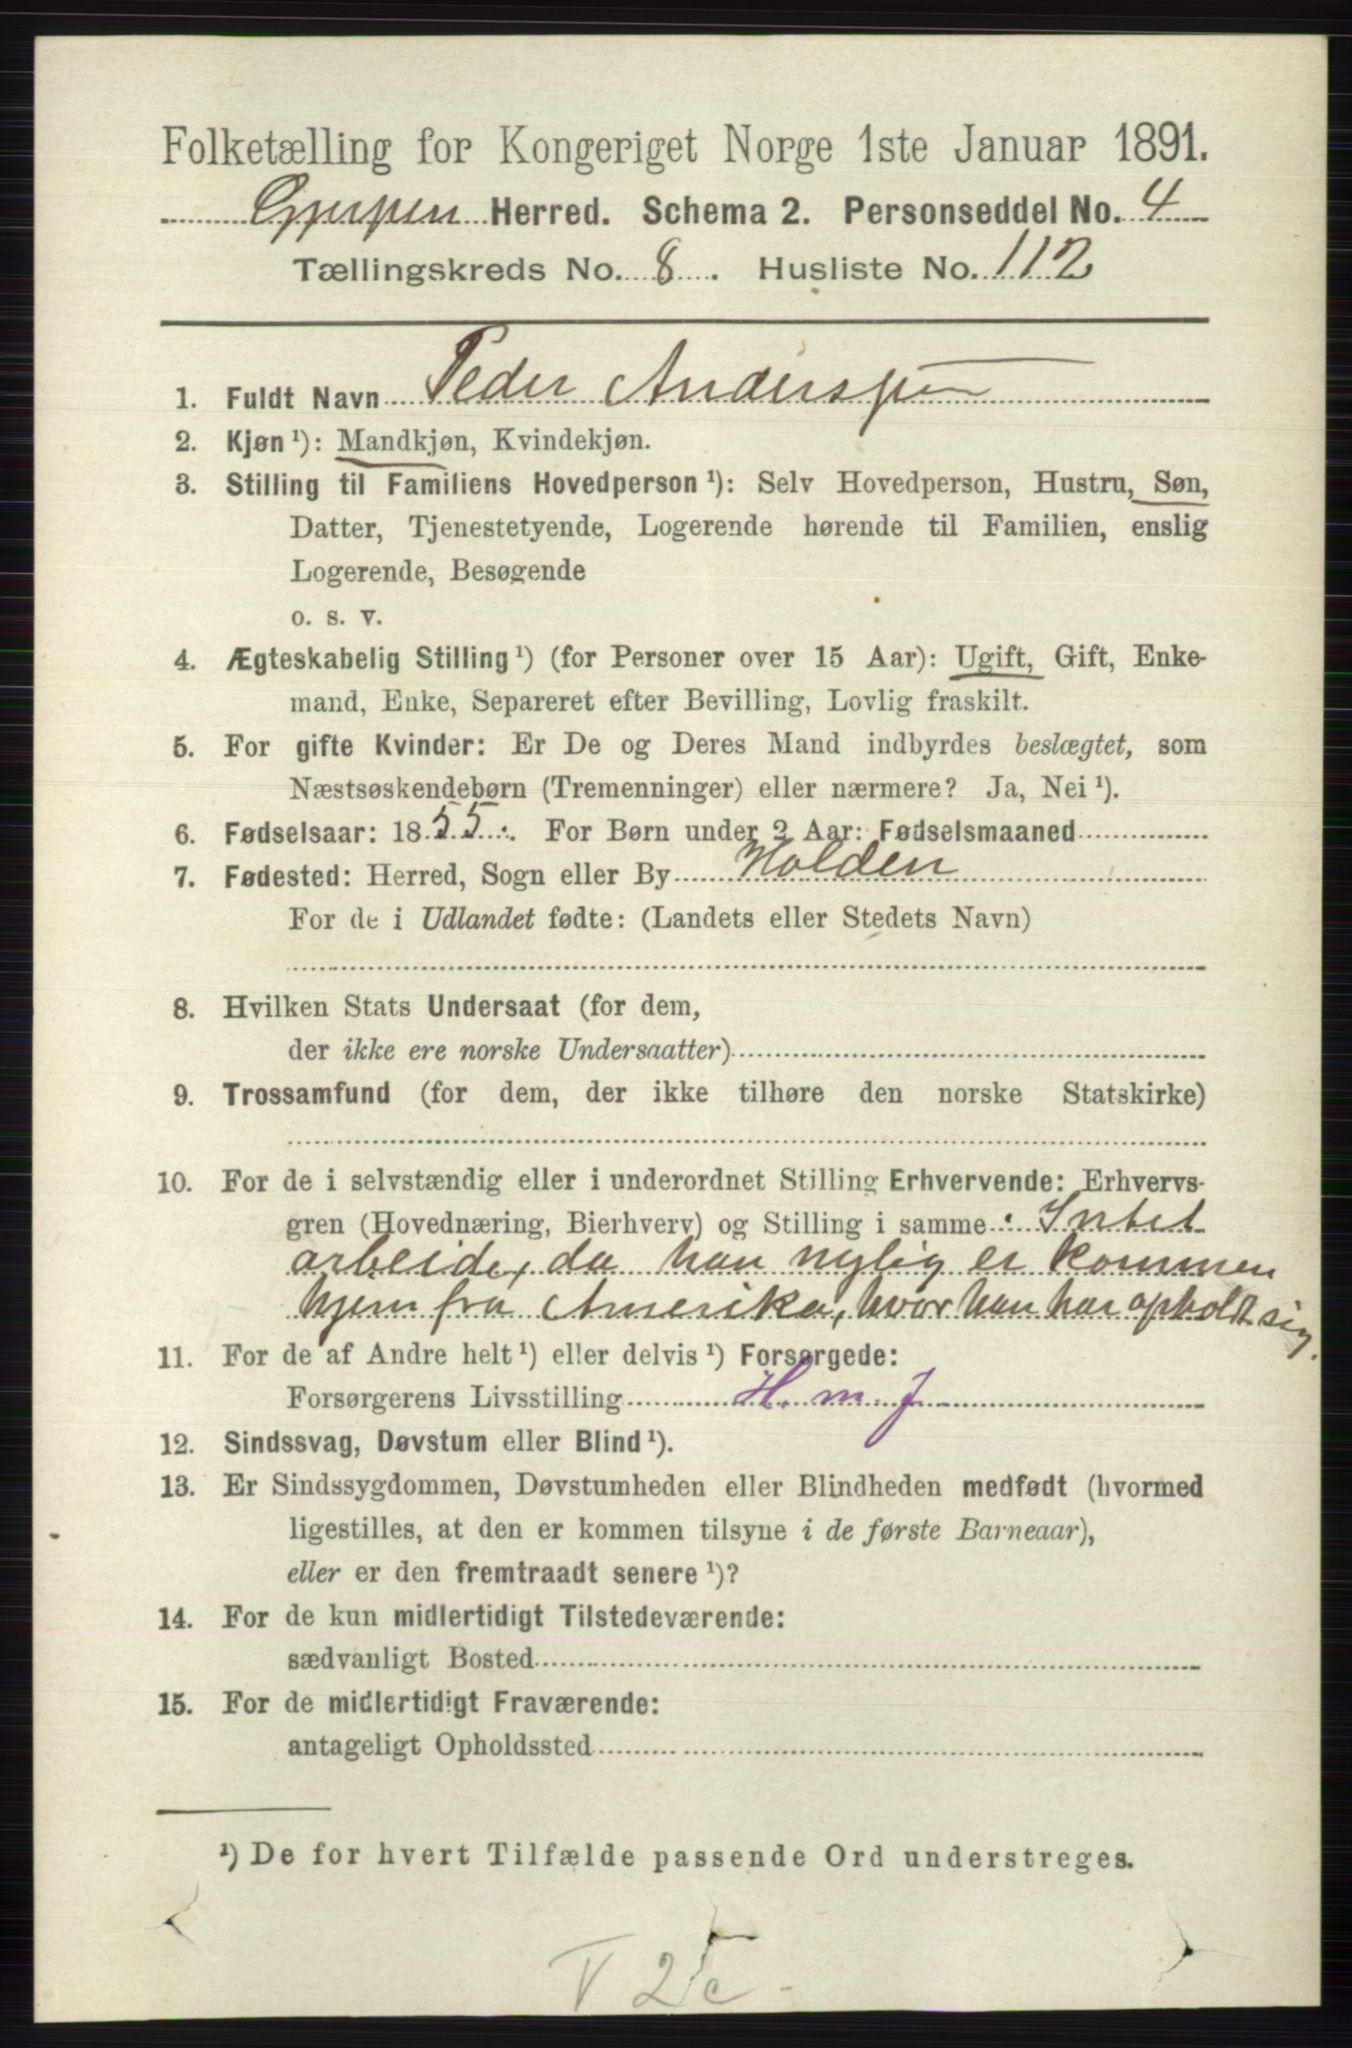 Folketælling for Kongeriget Norge 1ste Januar 1891.
Gjerpen Herred. Schema 2. Personseddel No. 4
Tællingskreds No. 8. Husliste No. 112
1. Fuldt Navn Peder Andersen
2. Kjøn ¹): Mandkjøn, Kvindekjøn.
3. Stilling til Familiens Hovedperson ¹): Selv Hovedperson, Hustru, Søn,
Datter, Tjenestetyende, Logerende hørende til Familien, enslig
Logerende, Besøgende
o. s. v.
4. Ægteskabelig Stilling ¹) (for Personer over 15 Aar): Ugift, Gift, Enke-
mand, Enke, Separeret efter Bevilling, Lovlig fraskilt.
5. For gifte Kvinder: Er De og Deres Mand indbyrdes beslægtet, som
Næstsøskendebørn (Tremenninger) eller nærmere? Ja, Nei ¹).
6. Fødselsaar: 1855. For Børn under 2 Aar: Fødselsmaaned
7. Fødested: Herred, Sogn eller By Holden
For de i Udlandet fødte: (Landets eller Stedets Navn)
8. Hvilken Stats Undersaat (for dem,
der ikke ere norske Undersaatter)
9. Trossamfund (for dem, der ikke tilhøre den norske Statskirke)
10. For de i selvstændig eller i underordnet Stilling Erhvervende: Erhvervs-
gren (Hovednæring, Bierhverv) og Stilling i samme: Intet
arbeide, da han nylig er kommen
hjem fra Amerika, hvor han har opholdt sig.
11. For de af Andre helt ¹) eller delvis ¹) Forsørgede:
Forsørgerens Livsstilling H. m. J
12. Sindssvag, Døvstum eller Blind ¹).
13. Er Sindssygdommen, Døvstumheden eller Blindheden medfødt (hvormed
ligestilles, at den er kommen tilsyne i de første Barneaar),
eller er den fremtraadt senere ¹)?
14. For de kun midlertidigt Tilstedeværende:
sædvanligt Bosted
15. For de midlertidigt Fraværende:
antageligt Opholdssted
¹) De for hvert Tilfælde passende Ord understreges.